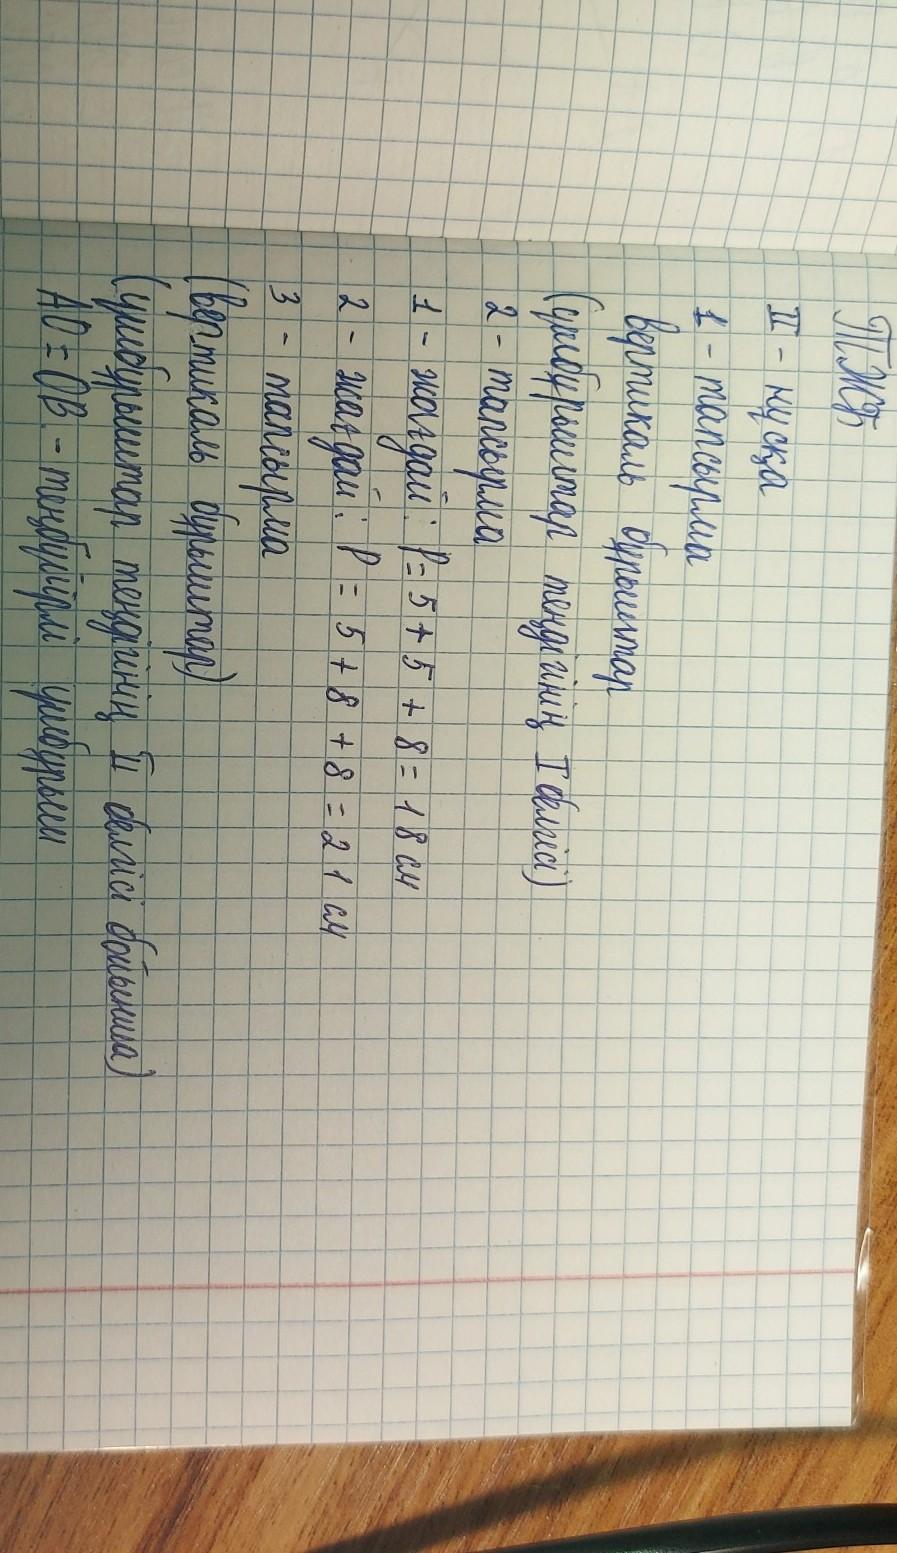 ТЖБ
II - нұсқа
1 - тапсырма
Вертикаль бұрыштар
(үшбұрыштар теңдігінің I белгісі)
2 - тапсырма
1 - жағдай: P = 5 + 5 + 8 = 18 см
2 - жағдай: P = 5 + 8 + 8 = 21 см
3 - тапсырма
(вертикаль бұрыштар)
(үшбұрыштар теңдігінің II белгісі бойынша)
AO = OB. - теңбүйірлі үшбұрыш